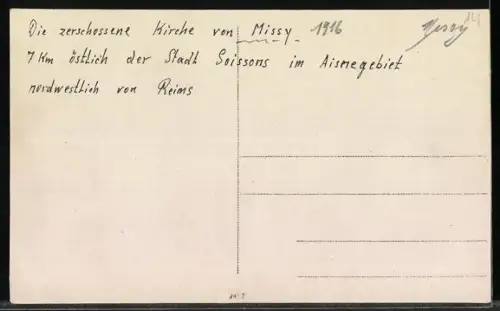 Die zerschossene Kirche von Missy. 1916
7 Km östlich der Stadt Soissons im Aisnegebiet
nordwestlich von Reims
Missy